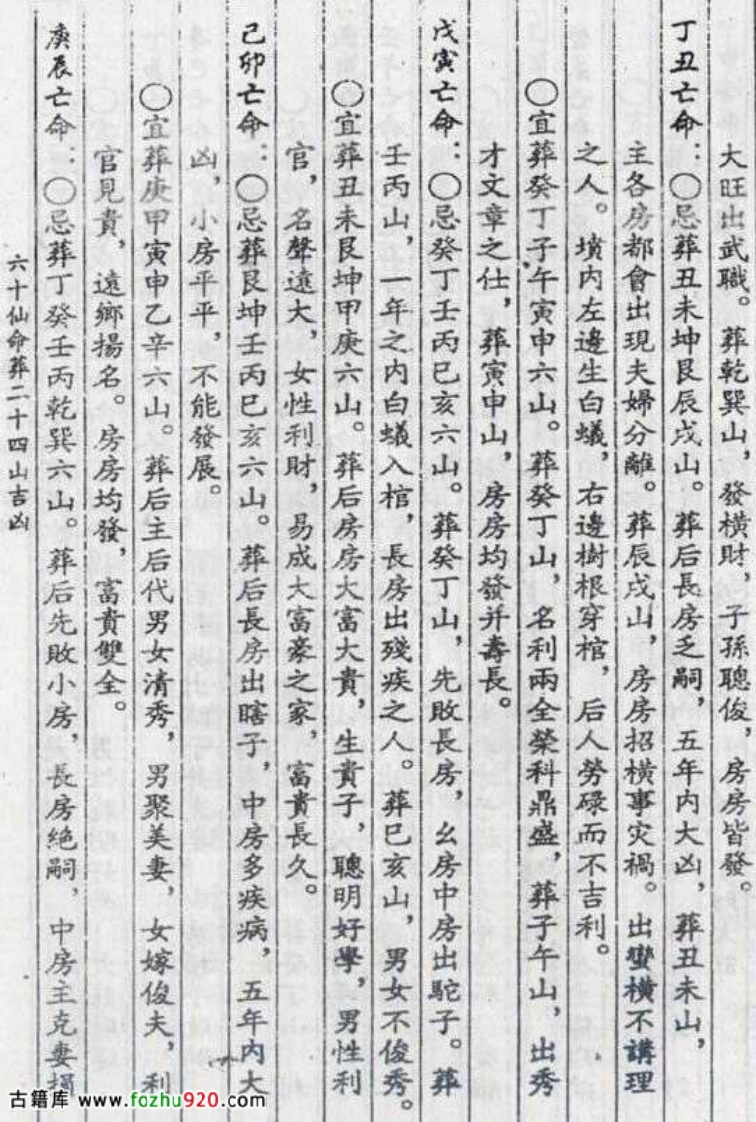 大旺出武職。葬乾巽山，發橫財，子孫聰俊，房房皆發。
丁丑亡命：○忌葬丑未坤艮辰戌山。葬后長房乏嗣，五年內大凶，葬丑未山，
主各房都會出現夫婦分離。葬辰戌山，房房招橫事灾禍。出蠻橫不講理
之人。墳內左邊生白蟻，右邊樹根穿棺，后人勞碌而不吉利。
○宜葬癸丁子午寅申六山。葬癸丁山，名利兩全榮科鼎盛，葬子午山，出秀
才文章之仕，葬寅申山，房房均發并壽長。
戊寅亡命：○忌癸丁壬丙巳亥六山。葬癸丁山，先敗長房，幺房中房出駝子。葬
壬丙山，一年之內白蟻入棺，長房出殘疾之人。葬巳亥山，男女不俊秀。
○宜葬丑未艮坤甲庚六山。葬后房房大富大貴，生貴子，聰明好學，男性利
官，名聲遠大，女性利財，易成大富豪之家，富貴長久。
己卯亡命：○忌葬艮坤壬丙巳亥六山。葬后長房出瞎子，中房多疾病 五年內大
凶，小房平平，不能發展。
○宜葬庚甲寅申乙辛六山。葬后主后代男女清秀，男聚美妻，女嫁俊夫，利
官見貴，遠鄉揚名。房房均發，富貴雙全。
庚辰亡命：○忌葬丁癸壬丙乾巽六山。葬后先敗小房，長房絕嗣，中房主克妻損
六十仙命葬二十四山吉凶
古籍库 www.fozhu920.com